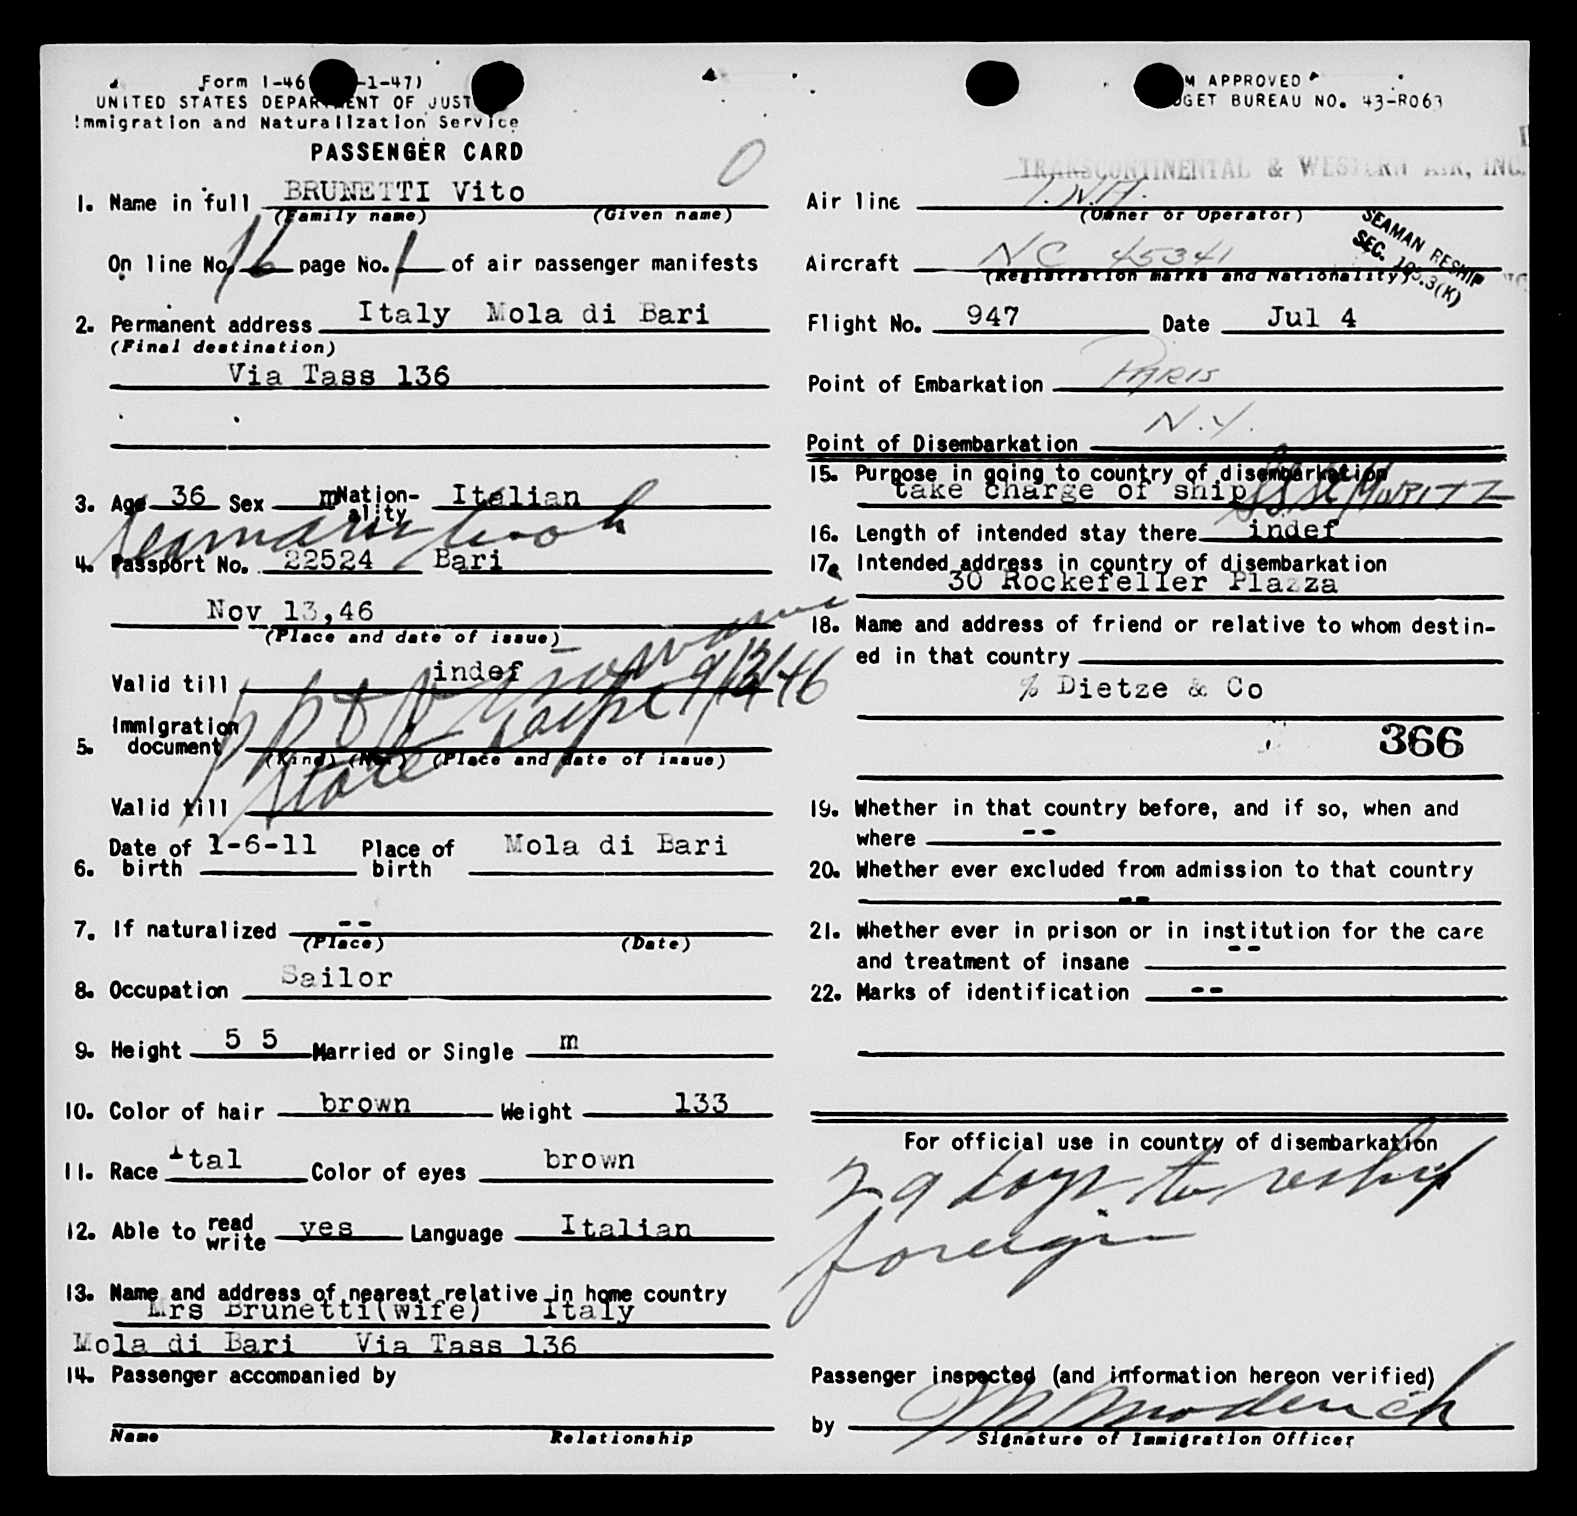 Form I-46 -1-47)
UNITED STATES DEPARTMENT OF JUST
Immigration and Naturalization Service
PASSENGER CARD
0
1. Name in full BRUNETTI Vito
(Family name) (Given name)
On line No. 16 page No. 1 of air passenger manifests
2. Permanent address Italy Mola di Bari
(Final destination)
Via Tass 136
3. Age 36 Sex m Nation-ality Italian
Seamans book
4. Passport No. 22524 Bari
Nov 13,46
(Place and date of issue)
Valid till indef
9/12/46
5. Immigration document
(Kind) (No.) (Place and date of issue)
State
Valid till
6. Date of birth 1-6-11 Place of birth Mola di Bari
7. If naturalized --
(Place) (Date)
8. Occupation Sailor
9. Height 5 5 Married or Single m
10. Color of hair brown Weight 133
11. Race Ital Color of eyes brown
12. Able to read write yes Language Italian
13. Name and address of nearest relative in home country
Mrs Brunetti(wife) Italy
Mola di Bari Via Tass 136
14. Passenger accompanied by
Name Relationship
M APPROVED
DGET BUREAU NO. 43-R063
TRANSCONTINENTAL & WESTERN AIR, INC.
Air line T.W.A.
(Owner or Operator)
SEAMAN RESHIP
SEC. 105.3(K)
Aircraft NC 45341
(Registration marks and Nationality)
Flight No. 947 Date Jul 4
Point of Embarkation PARIS
Point of Disembarkation N.Y.
15. Purpose in going to country of disembarkation
take charge of ship
16. Length of intended stay there indef
17. Intended address in country of disembarkation
30 Rockefeller Plazza
18. Name and address of friend or relative to whom destin-
ed in that country
% Dietze & Co
366
19. Whether in that country before, and if so, when and
where --
20. Whether ever excluded from admission to that country
--
21. Whether ever in prison or in institution for the care
and treatment of insane --
22. Marks of identification --
For official use in country of disembarkation
29 days to reship
foreign
Passenger inspected (and information hereon verified)
by
Signature of Immigration Officer